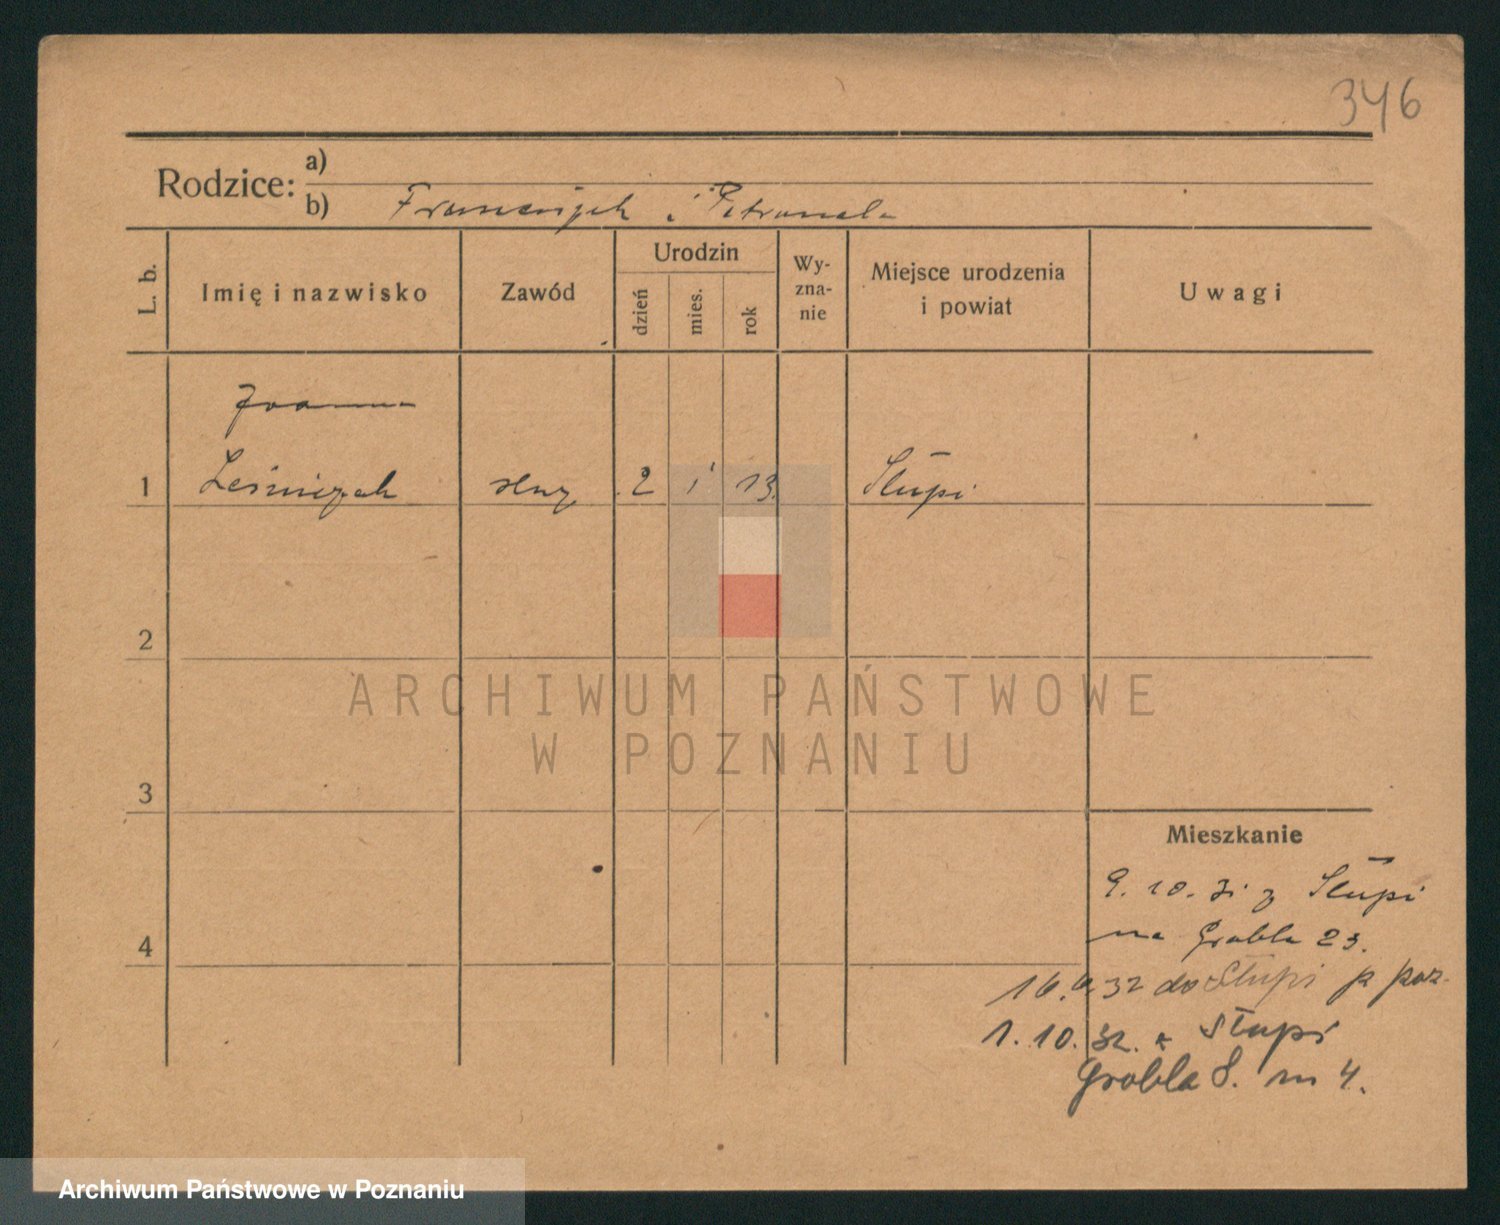 346
Rodzice: a)
b) Franciszek i Petronela
L. b.
Imię i nazwisko
Zawód
Urodzin
dzień
mies.
rok
Wy-
zna-
nie
Miejsce urodzenia
i powiat
Uwagi
Joanna
1 Leśniczak służ 2 1 13 Słupi
2
3
4
Mieszkanie
9. 10. 31 z Słupi
na Grobla 23.
16. 32 do Słupi p poz.
1. 10. 32. z Słupi
Grobla 8. m 4.
ARCHIWUM PAŃSTWOWE
W POZNANIU
Archiwum Państwowe w Poznaniu